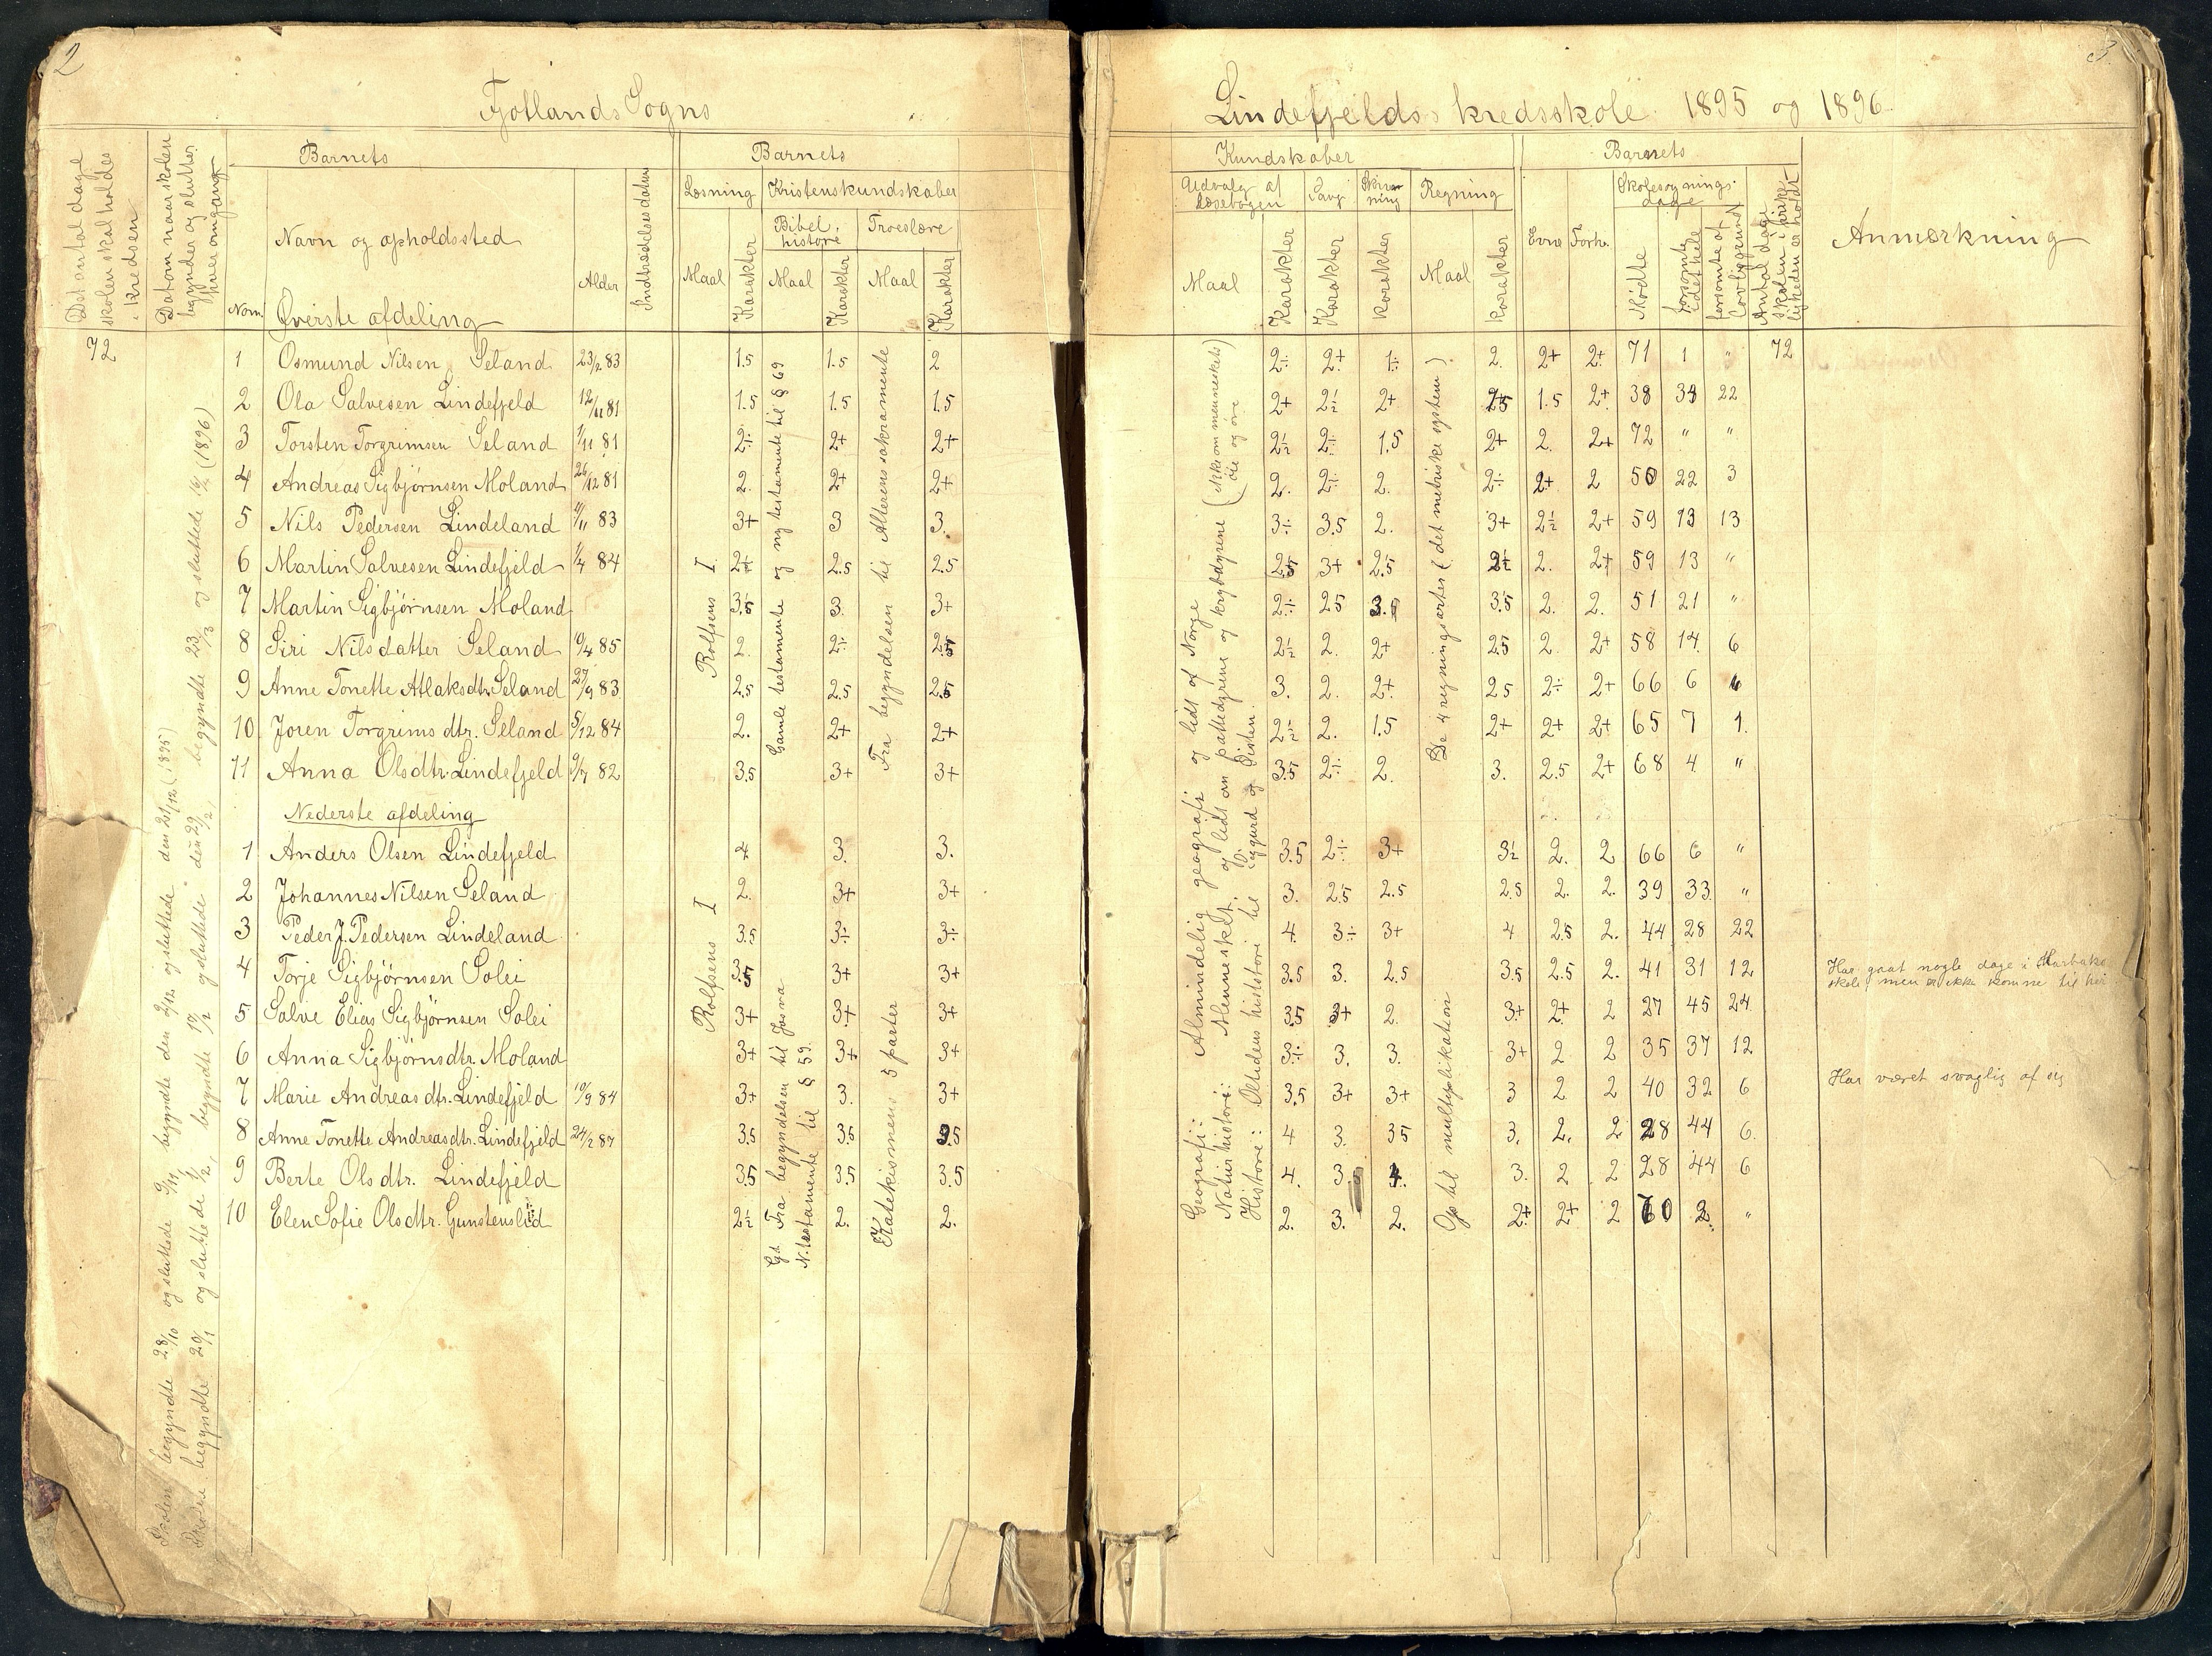 2
Fjotlands Sogns
Det antal dage skolen skal holdes i kredsen
Datum naar skolen begynder og slutter hver omgang
Barnets
Nom
Navn og opholdssted
Øverste afdeling
Alder
Indtrædelsesdatum
Barnets
Læsning
Kristenskundskaber
Maal
Karakter
Bibelhistorie
Maal
Karakter
Troeslære
Maal
Karakter
72
1 Osmund Nilsen Seland 23/2 83 1.5 1.5 2
2 Ola Salvesen Lindefjeld 12/11 81 1.5 1.5 1.5
3 Torsten Torgrimsen Seland 1/11 81 2÷ 2+ 2+
4 Andreas Sigbjørnsen Moland 26/12 81 2. 2+ 2+
5 Nils Pedersen Lindeland 11/11 83 3+ 3 3.
6 Martin Salvesen Lindefjeld 1/4 84 2.5 2.5
7 Martin Sigbjørnsen Moland 3.5 3. 3+
8 Siri Nilsdatter Seland 10/4 85 2. 2÷ 2.5
9 Anne Tonette Atlaksdtr. Seland 27/9 83 2.5 2.5 2.5
10 Joren Torgrims dtr. Seland 5/12 84 2. 2+ 2+
11 Anna Olsdtr. Lindefjeld 9/7 82 3.5 3+ 3+
Nederste afdeling
1 Anders Olsen Lindefjeld 4 3. 3.
2 Johannes Nilsen Seland 2. 3+ 3+
3 Peder J. Pedersen Lindeland 3.5 3÷ 3÷
4 Torje Sigbjørnsen Solei 3.5 3+ 3+
5 Salve Elias Sigbjörnsen Solei 3+ 3+ 3+
6 Anna Sigbjørnsdtr. Moland 3+ 3+ 3+
7 Marie Andreas dtr. Lindefjeld 10/9 84 3+ 3. 3+
8 Anne Tonette Andreasdtr. Lindefjeld 24/2 87 3.5 3.5 3.5
9 Berte Olsdtr. Lindefjeld 3.5 3.5 3.5
10 Elen Sofie Olsdtr. Gunstenslid 2½ 2. 2.
Skolen begyndte 28/10 og sluttede 9/11, begyndte den 2/12 og sluttede den 21/12 (1895)
Skolen begyndte 20/1 og sluttede 1/2, begyndte 17/2 og sluttede den 29/2, begyndte 23/3 og sluttede (1896)
Rolfsens I
Rolfsens I
Gamle testamente og ny testamente til § 69
Gt Fra begyndelsen til Josva
N. testamente til § 59.
Fra begyndelsen til Alterens sakramente
Katekismens 5 parter
3.
Lindefjelds kredsskole 1895 og 1896
Kundskaber
Udvalg af læsebogen
Maal
Karakter
Sang
Karakter
Skrivning
karakter
Regning
Maal
karakter
Barnets
Evne
Forh.
Skolesøgningsdage
Mødte
forsømte i det hele
forsømte af lovlig grund
Antal dage skolen i virkeligheden er holdt
Anmærkning
2÷ 2+ 1÷ 2. 2+ 2+ 71 1 " 72
2+ 2½ 2+ 2.5 1.5 2+ 38 34 22
2½ 2÷ 1.5 2+ 2. 2+ 72 " "
2. 2÷ 2. 2÷ 2+ 2 50 22 3
3÷ 3.5 2. 3+ 2½ 2+ 59 13 13
2.5 3+ 2.5 2. 2+ 59 13 "
2÷ 2.5 3.5 3.5 2. 2. 51 21 "
2½ 2. 2+ 2.5 2 2+ 58 14 6
3. 2. 2+ 2.5 2÷ 2+ 66 6
2½ 2. 1.5 2+ 2+ 2+ 65 7 1.
3.5 2÷ 2. 3. 2.5 2+ 68 4 "
3.5 2÷ 3+ 3½ 2. 2 66 6 "
3. 2.5 2.5 2.5 2. 2. 39 33. "
4. 3÷ 3+ 4 2.5 2. 44 28 22
3.5 3. 2.5 3.5 2.5 2. 41 31 12 Har gaat nogle dage i skole, men er ikke komne til her
3.5 3+ 2. 3+ 2+ 2 27 45 24
3÷ 3. 3. 3+ 2 2 35 37 12
3.5 3+ 3+ 3 2 2 40 32 6 Har været svaglig af sig
4 3. 3.5 3. 2. 2 28 44 6.
4. 3. 4. 3. 2 2 28 44 6
2. 3. 2. 2+ 2+ 2 60 2. "
Geografi: Almindelig geografi og lidt af Norge
Naturhistorie: Mennesket, og lidt om pattedyrene og krybdyrene
Historie: Oltidens historie til Sigurd og Øisten.
De 4 regningsarter (det metriske system)
Op til multiplikation